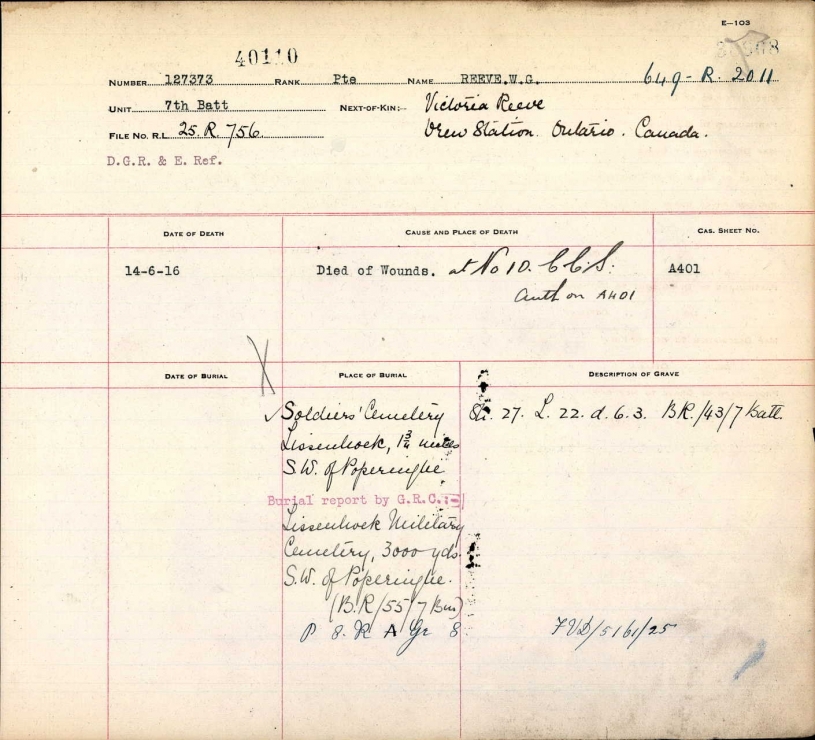 E—103
40110
NUMBER 127373 RANK Pte NAME REEVE.W.G. 649-R. 2011
UNIT 7th Batt NEXT-OF-KIN:— Victoria Reeve
FILE NO. R.L. 25. R. 756 Drew Station. Ontario. Canada.
D.G.R. & E. Ref.
DATE OF DEATH CAUSE AND PLACE OF DEATH CAS. SHEET NO.
14-6-16 Died of Wounds. at No 10. C.C.S. A401
Auth on A401
DATE OF BURIAL PLACE OF BURIAL DESCRIPTION OF GRAVE
Soldiers' Cemetery Sh. 27. L. 22. d. 6. 3. B.R./43/7 Batt.
Lissenhoek, 1¾ miles
S.W. of Poperinghe
Burial report by G.R.C.:-
Lissenhoek Military
Cemetery, 3000 yds.
S.W. of Poperinghe.
(B.R/55/7 Bn)
P 8. R A Gr 8 FVD/5161/25